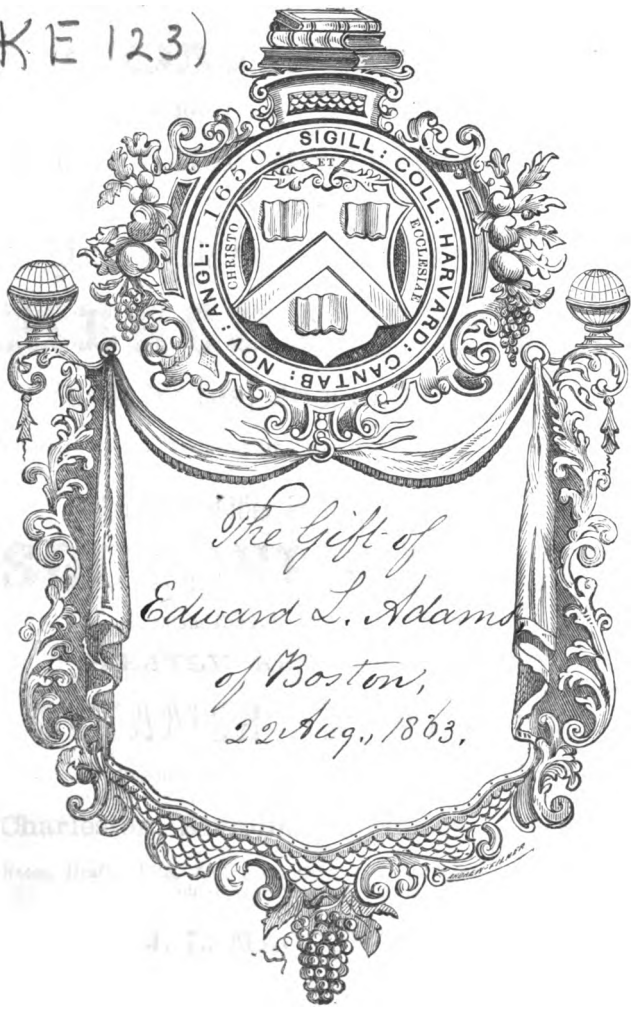 KE 123)
SIGILL: COLL: HARVARD: CANTAB: NOV: ANGL: 1650.
ET
CHRISTO
ECCLESIAE
The Gift of
Edward L. Adams,
of Boston,
22 Aug., 1863.